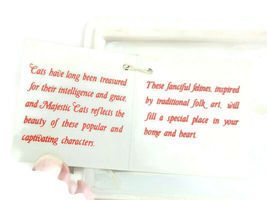 Cats have long been treasured
for their intelligence and grace,
and Majestic Cats reflects the
beauty of these popular and
captivating characters.
These fanciful felines, inspired
by traditional folk art, will
fill a special place in your
home and heart.